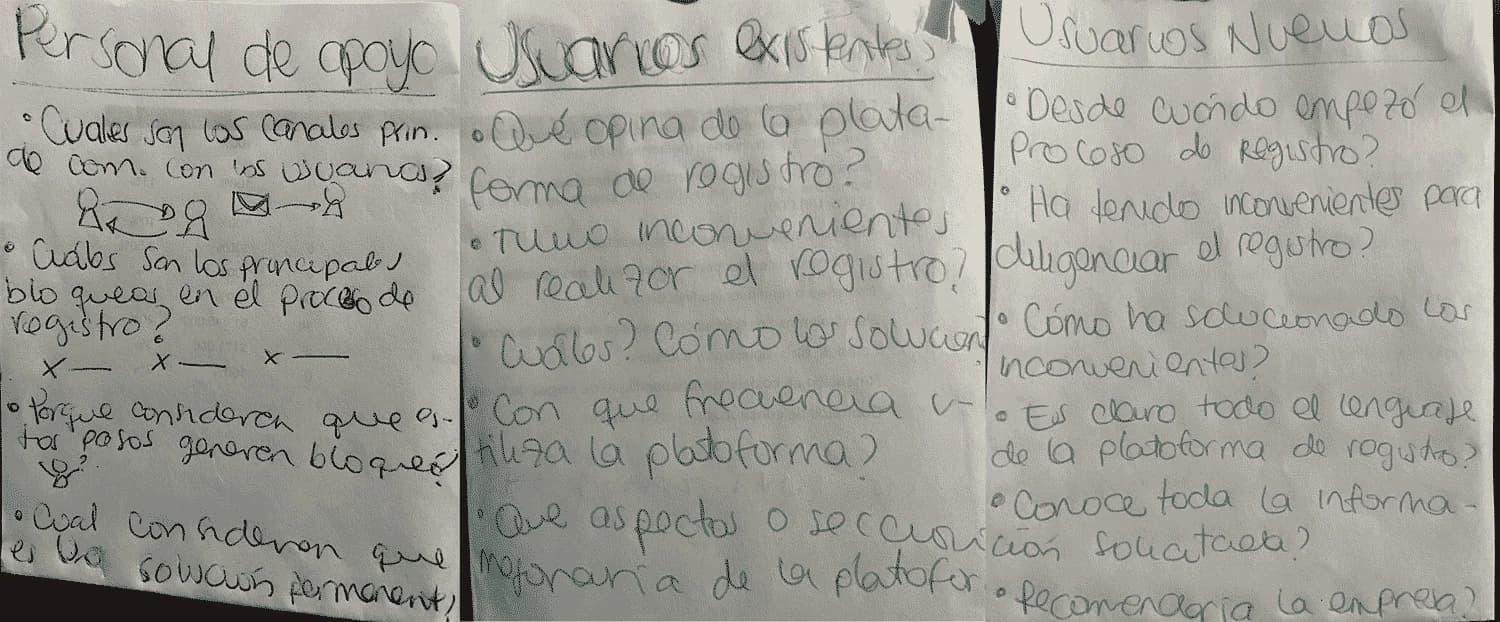 Personal de apoyo
• Cuales son los canales prin.
de com. con los usuarios?
• Cuáles son los principales
bloqueos en el proceso de
registro?
x — x — x —
• Porque consideren que es-
tos pasos generen bloqueo?
?
• Cual consideran que
es la solución permanent
Usuarios existentes?
• Qué opina de la plata-
forma de registro?
• Tuvo inconvenientes
al realizar el registro?
• Cuáles? Cómo los solucion
• Con que frecuencia u-
tiliza la plataforma?
• Que aspectos o sección
mejoraria de la platafor
Usuarios Nuevos
• Desde cuándo empezó el
Proceso de Registro?
• Ha tenido inconvenientes para
diligenciar el registro?
• Cómo ha solucionado los
inconvenientes?
• Es claro todo el lenguaje
de la plataforma de registro?
• Conoce toda la informa-
ción solicitada?
• Recomendaría la empresa?